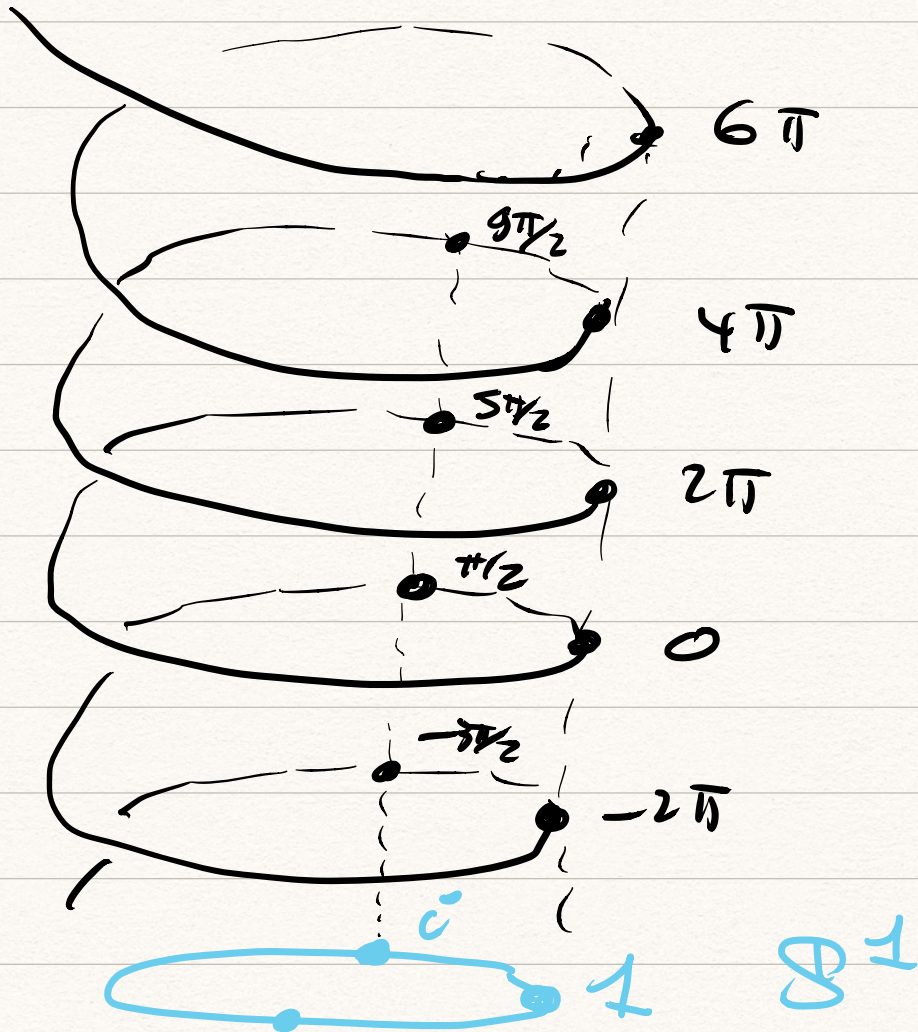 6π
9π/2
4π
5π/2
2π
π/2
0
-3π/2
-2π
i
1 S¹